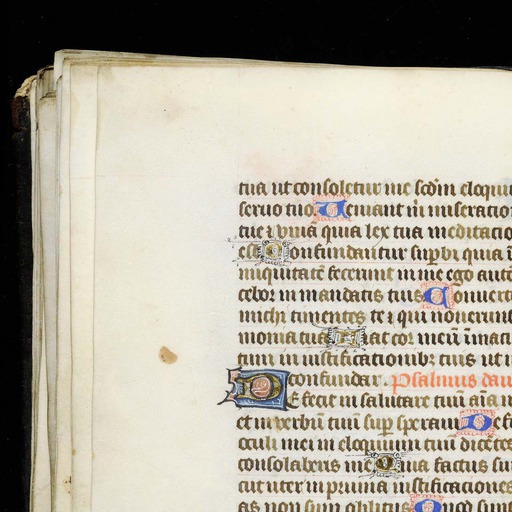 tua ut consoletur me scdm eloqui
seruo tuo Ueniant m miseratio
tue ⁊ viuā quia lex tua meditacio
est Confundantur supbi quia i
iniquitatē fecerunt in me ego autē
cebor in mandatis tuis Conuert
michi timentes te ⁊ qui nouerunt
monia tua Fiat cor meū īmac
tum in iustificationibꝫ tuis ut n
confundar. Psalmus dau
DE fecit in salutare tuū aīa m
et in verbū tuū sup speraui Defe
oculi mei in eloquium tuū dicētes
consolaberis me Quia factus su
cut uter in pruina iustificaciones
as non sum oblitus Quod sunt